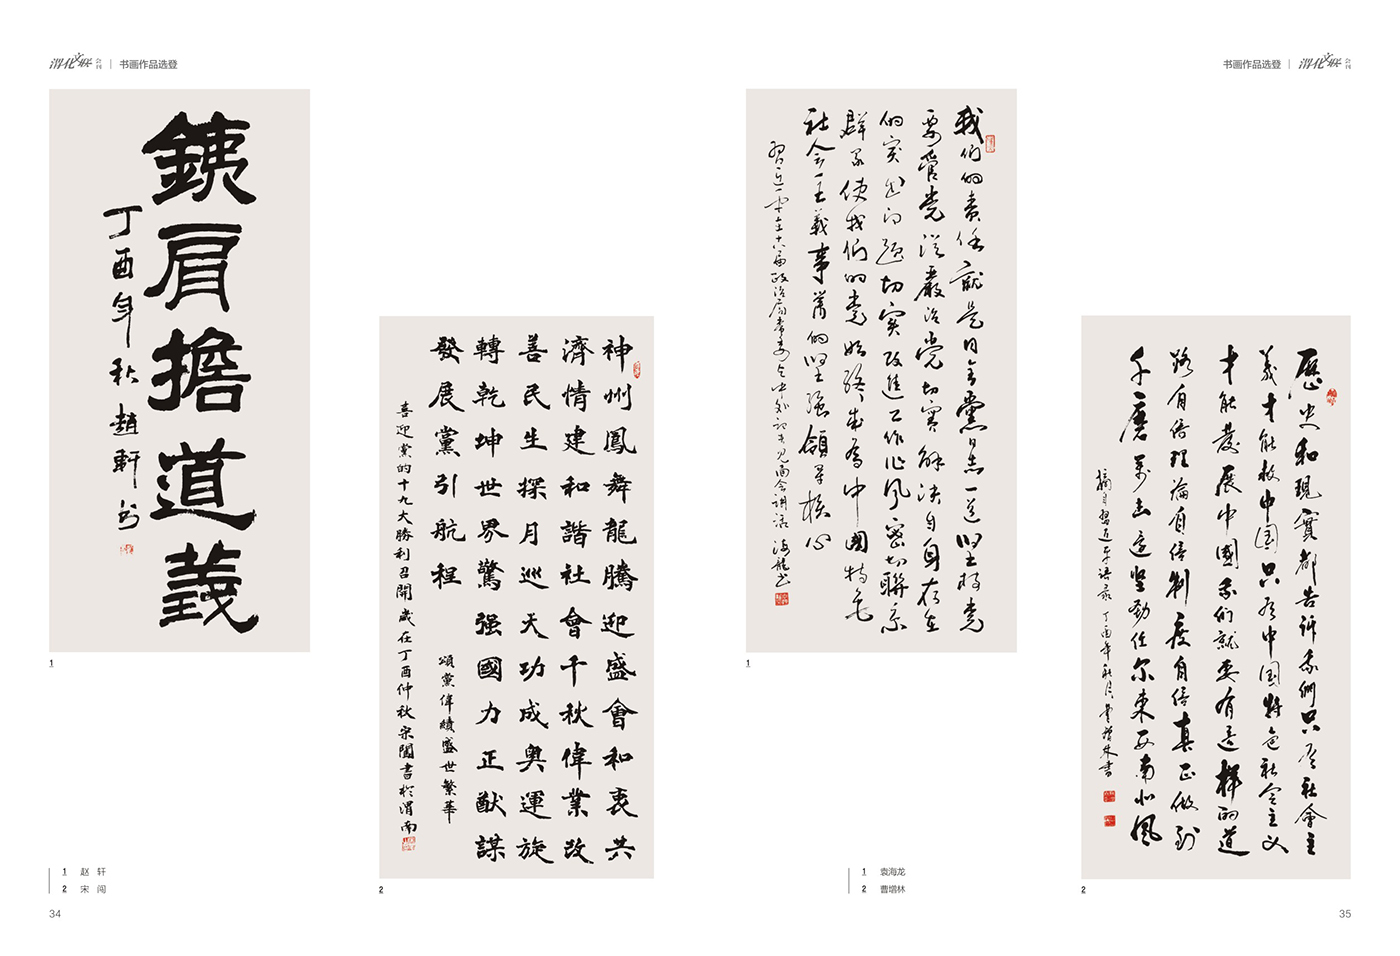 渭化文联 会刊 | 书画作品选登
銕肩擔道義
丁酉年秋趙軒书
1
神州鳳舞龍騰迎盛會和衷共
濟情建和諧社會千秋偉業改
善民生探月巡天功成奥運旋
轉乾坤世界驚强國力正猷謀
發展黨引航程
頌黨偉績盛世繁華
喜迎黨的十九大勝利召開 歲在丁酉仲秋宋闖書於渭南
2
1 赵 轩
2 宋 闯
34
书画作品选登 | 渭化文联 会刊
我们的责任就是同全黨同志一道坚持党
要管党從嚴治党切實解决自身存在
的突出问题切實改進工作作风密切聯系
群众使我们的党始终成為中國特色
社会主義事業的坚强領导核心
習近平在十八届政治局常委与中外记者见面会讲话 海龍书
1
歷史和現實都告訴我們只有社會主
義才能救中国只有中国特色社会主义
才能發展中國我们就要有這样的道
路自信理論自信制度自信真正做到
千磨萬击還坚劲任尔東西南北風
摘自習近平语录 丁酉年秋月曹增林書
2
1 袁海龙
2 曹增林
35